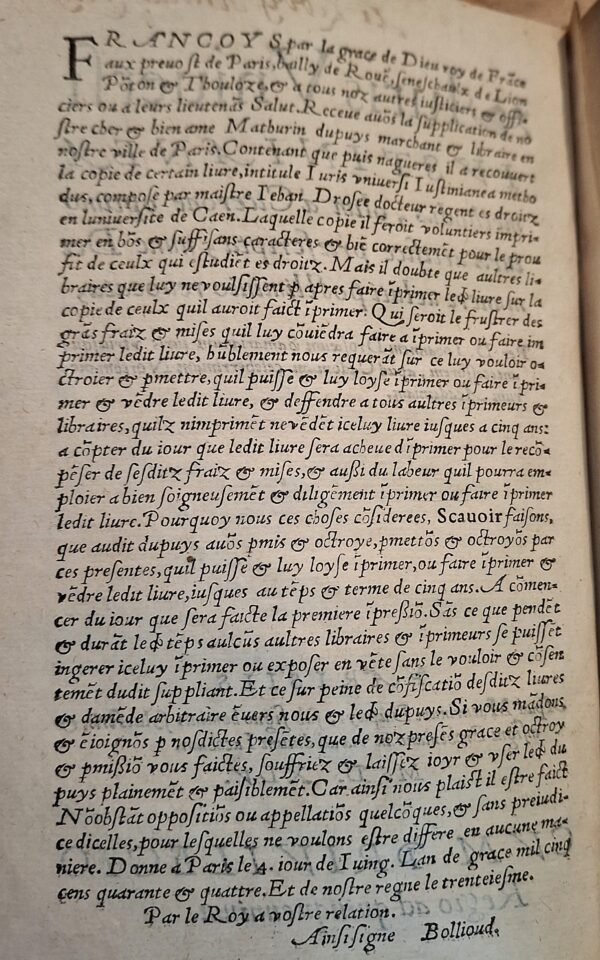 FRANCOYS par la grace de Dieu roy de Frāce
aux prevost de Paris, bailly de Rouē, seneschaulx de Lion
Pōton & Thoulōze, & a tous noz autres iusticiers & offi-
ciers ou a leurs lieutenās Salut. Receue auōs la supplication de no
stre cher & bien ame Mathurin dupuys marchant & libraire en
nostre ville de Paris. Contenant que puis nagueres il a recouvert
la copie de certain liure, intitule Iuris vniuersi Iustinianea metho
dus, compose par maistre Iehan Drosee docteur regent es droitz
en luniuersite de Caen. Laquelle copie il feroit voluntiers impri-
mer en bōs & suffisans caracteres & biē correctemēt pour le prou
fit de ceulx qui estudiēt es droitz. Mais il doubte que aultres li-
braires que luy ne voulsissent p apres faire īprimer led liure sur la
copie de ceulx quil auroit faict īprimer. Qui seroit le frustrer des
grās fraiz & mises quil luy cōuiēdra faire a īprimer ou faire im
primer ledit liure, hūblement nous requerāt sur ce luy vouloir o-
ctroier & pmettre, quil puisse & luy loyse īprimer ou faire īpri-
mer & vēdre ledit liure, & deffendre a tous aultres īprimeurs &
libraires, quilz nimprimēt ne vēdēt iceluy iusques a cinq ans:
a cōpter du iour que ledit liure sera acheue dīprimer pour le recō-
pēser de sesditz fraiz & mises, & aussi du labeur quil pourra em-
ploier a bien soigneusemēt & diligēment īprimer ou faire īprimer
ledit liure. Pourquoy nous ces choses cōsiderees, Scauoir faisons,
que audit dupuys auōs pmis & octroye, pmettōs & octroyōs par
ces presentes, quil puisse & luy loyse īprimer, ou faire īprimer &
vēdre ledit liure, iusques au tēps & terme de cinq ans. A cōmen-
cer du iour que sera faicte la premiere īpressiō. Sās ce que pendēt
& durāt led tēps aulcūs aultres libraires & īprimeurs se puissēt
ingerer iceluy īprimer ou exposer en vēte sans le vouloir & cōsen
temēt dudit suppliant. Et ce sur peine de cōfiscatiō desditz liures
& damēde arbitraire ēuers nous & led dupuys. Si vous mādons
& ēioignōs p nosdictes presētes, que de noz presēs grace et octroy
& pmissiō vous faictes, souffriez & laissez ioyr & vser led du
puys plainemēt & paisiblemēt. Car ainsi nous plaist il estre faict
Nōobstāt oppositiōs ou appellatiōs quelcōques, & sans preiudi-
ce dicelles, pour lesquelles ne voulons estre differe en aucune ma-
niere. Donne a Paris le 4. iour de Iuing. Lan de grace mil cinq
cens quarante & quattre. Et de nostre regne le trenteiesme.
Par le Roy a vostre relation.
Ainsi signe Bollioud.